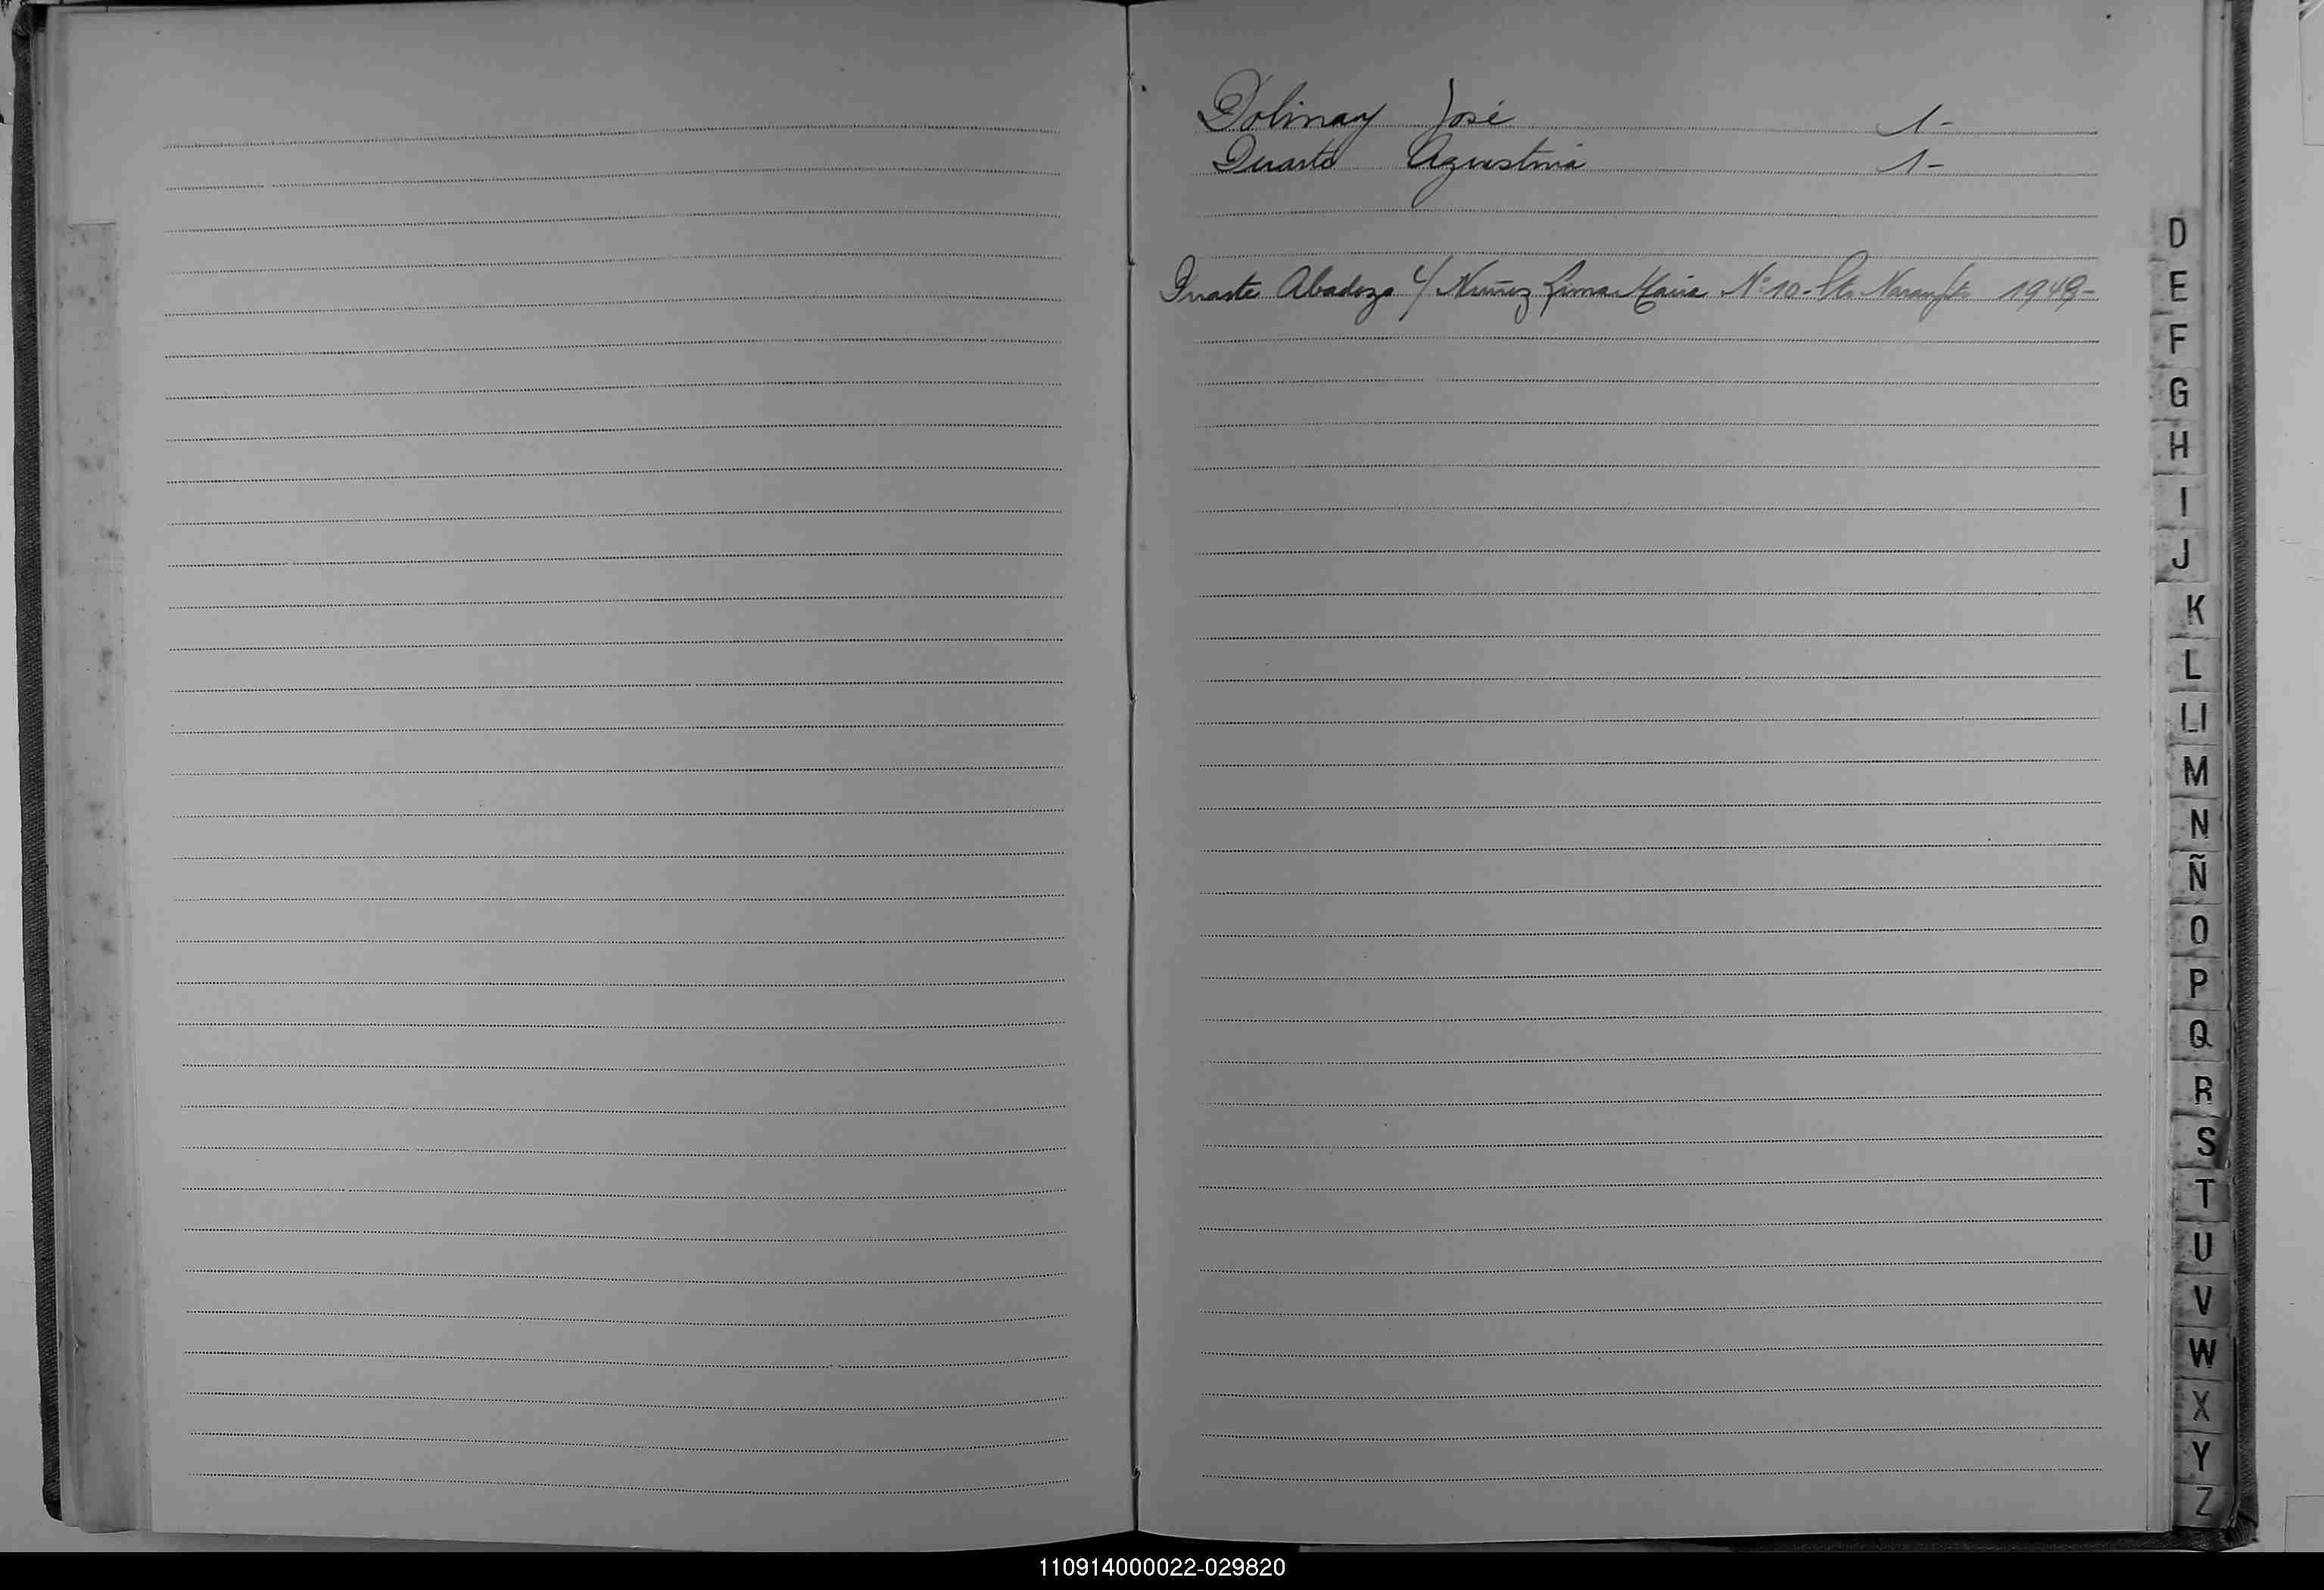 Dolinay José 1-
Duarte Agustina 1-
Duarte Abadozo c/ Nuñez Lima Maria Nº 10- Pto Naranjito 1949-
D
E
F
G
H
I
J
K
L
Ll
M
N
Ñ
O
P
Q
R
S
T
U
V
W
X
Y
Z
110914000022-029820